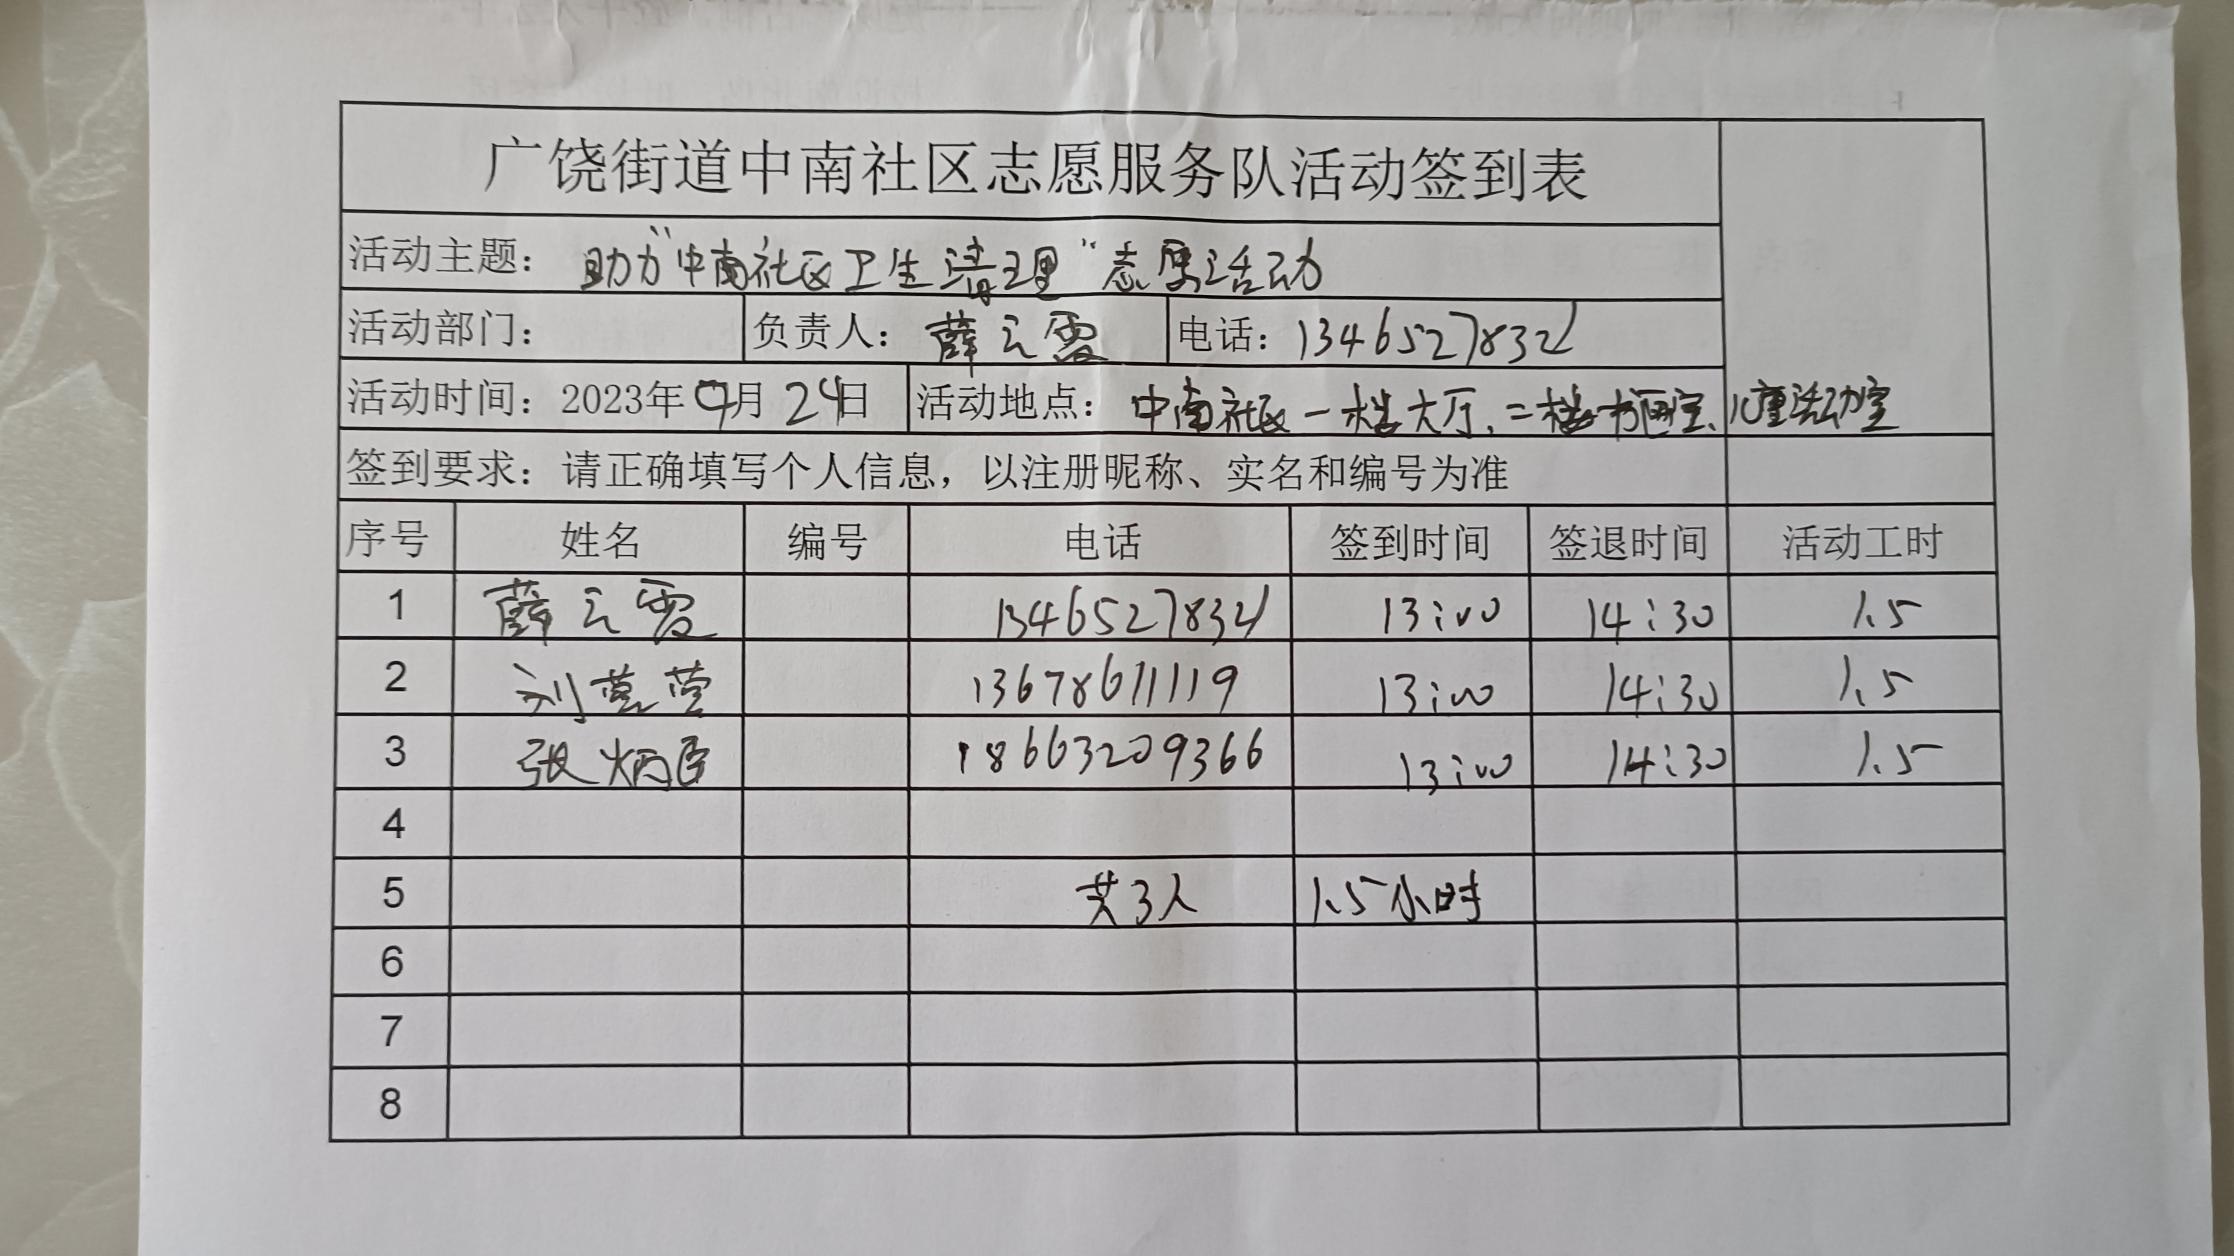 广饶街道中南社区志愿服务队活动签到表
活动主题：助力“中南社区卫生清理”志愿活动
活动部门： 负责人：薛云霞 电话：13465278321
活动时间：2023年9月24日 活动地点：中南社区一楼大厅、二楼书画室、儿童活动室
签到要求：请正确填写个人信息，以注册昵称、实名和编号为准
序号 姓名 编号 电话 签到时间 签退时间 活动工时
1 薛云霞 13465278321 13:00 14:30 1.5
2 刘营营 13678611119 13:00 14:30 1.5
3 张炳臣 18663209366 13:00 14:30 1.5
4
5 共3人 1.5小时
6
7
8